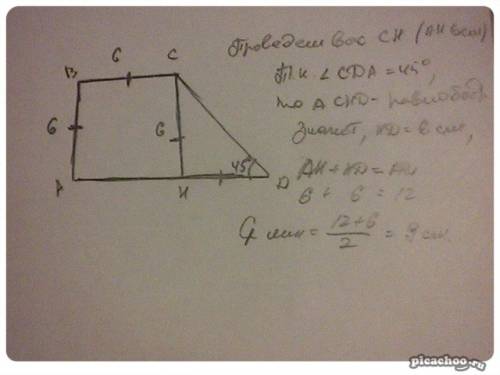 Проведем выс CH (AH=6см)
Т.к. ∠ CDA = 45°,
то △ CHD - равнобедр
Значит, HD = 6 см,
AH + HD = AD
6 + 6 = 12
Ср лин = 12+6 / 2 = 9 см.
B 6 C
6 6
45°
A H D
picachoo.ru